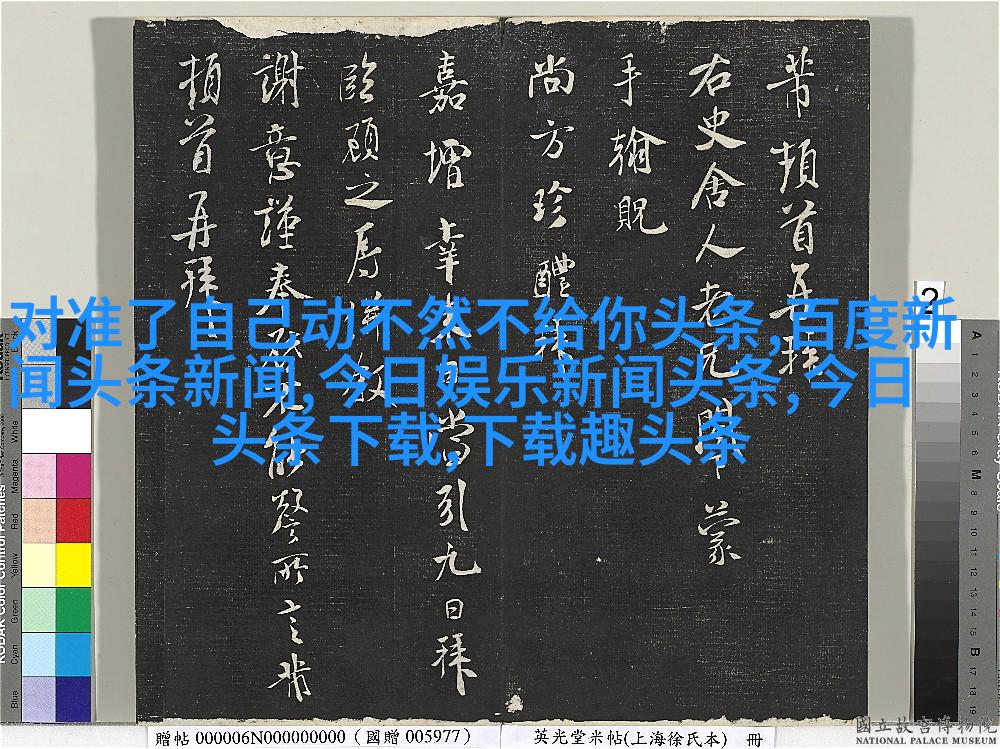 芾頓首再拜
右史舍人老兄 蒙
手翰貺
尚方珍醴
嘉 幸 當引九日拜
臨顧之辱
謝意謹奉 所言芾
頓首再拜
对准了自己动不然不给你头条,百度新
闻头条新闻,今日娱乐新闻头条,今日
头条下载,下载趣头条
2
贈帖 000006N000000000 (國贈 005977)
英光堂米帖(上海徐氏本) 冊
國立故宮博物院
NATIONAL PALACE MUSEUM
White
Magenta
Red
Yellow
Green
Cyan
Blue
A
1
2
3
4
5
6
M
8
9
10
11
12
13
14
15
B
17
18
19